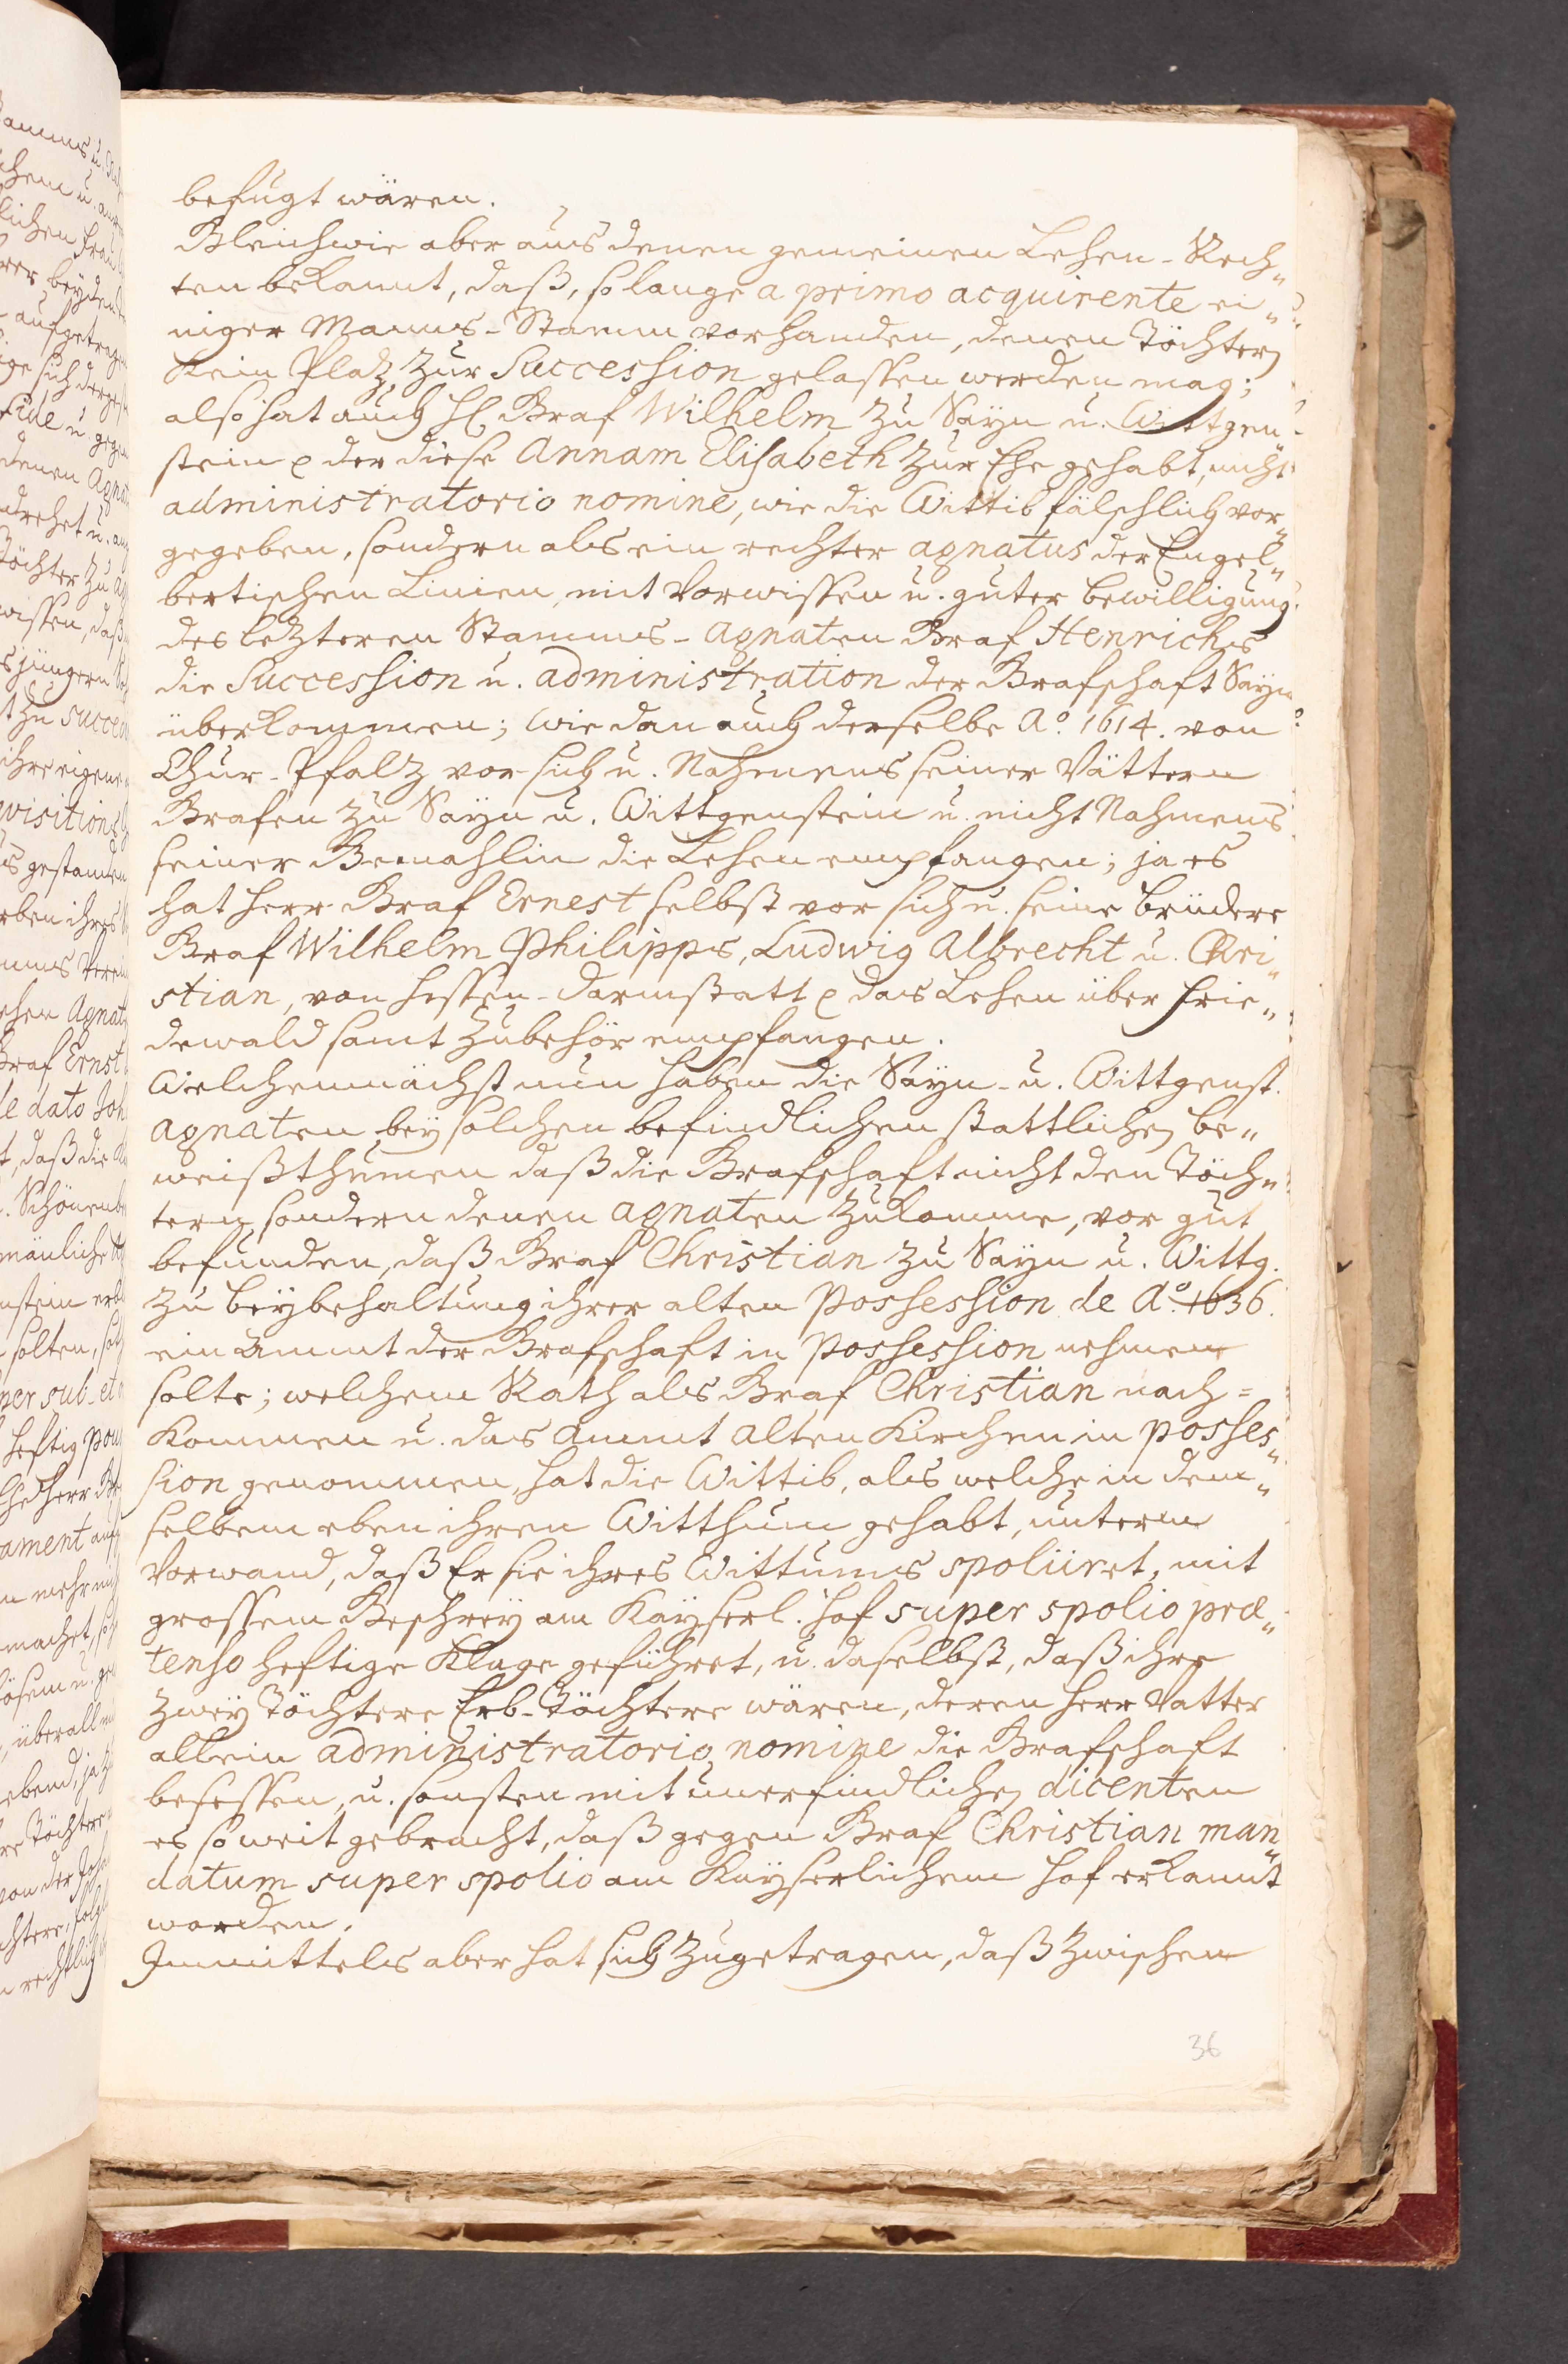 befugt wären.
Gleichwie aber aus denen gemeinen Lehen-Rech„
ten bekannt, daß, solange a primo acquirente ei„
niger Manns-Stamm vorhanden, denen Töchtern
kein Platz zur Succession gelassen werden mag;
also hat auch H. Graf Wilhelm zu Sayn u. Wittgen„
stein p der diese Annam Elisabeth zur Ehe gehabt, nicht
administratorio nomine, wie die Wittib fälschlich vor„
gegeben, sondern als ein rechter agnatus der Engel„
bertischen Linien, mit Vorwissen u. guter Bewilligung
des letzteren Stamms-Agnaten Graf Henrichs
die Succession u. administration der Grafschaft Sayn
überkommen; wie dan auch derselbe Aº. 1614. von
Chur-Pfalz vor sich u. Nahmens seiner Vättern
Grafen zu Sayn u. Wittgenstein u. nicht Nahmens
seiner Gemahlin die Lehen empfangen; ja es
hat Herr Graf Ernest selbst vor sich u. seine Brüdere
Graf Wilhelm Philipps, Ludwig Albrecht u. Chri„
stian, von Hessen-Darmstatt p das Lehen über Frie„
dewald samt Zubehör empfangen.
Welchemnächst nun haben die Sayn- u. Wittgenst.
Agnaten bey solchen befindlichen stattlichen Be„
weißthumen daß die Grafschaft nicht den Töch„
tern sondern denen Agnaten zukomme, vor gut
befunden, daß Graf Christian zu Sayn u. Wittg.
zu Beybehaltung ihrer alten Possession de Aº. 1636.
ein Ammt der Grafschaft in Possession nehmen
solte; welchem Rath als Graf Christian nach=
kommen u. das Ammt Alten Kirchen in posses„
sion genommen, hat die Wittib, als welche in dem„
selben eben ihren Witthum gehabt, unterm
Vorwand, daß Er sie ihres Wittums spoliiret, mit
grossem Geschrey am Kayserl. Hof super spolio præ„
tenso heftige Klage geführet, u. daselbst, daß ihre
zwey Töchtere Erb-Töchtere wären, deren Herr Vatter
allein administratorio nomine die Grafschaft
besessen, u. sonsten mit unerfindlichen dicenten
es so weit gebracht, daß gegen Graf Christian man„
datum super spolio am Kayserlichem Hof erkannt
worden.
Immittels aber hat sich zugetragen, daß zwischen
36